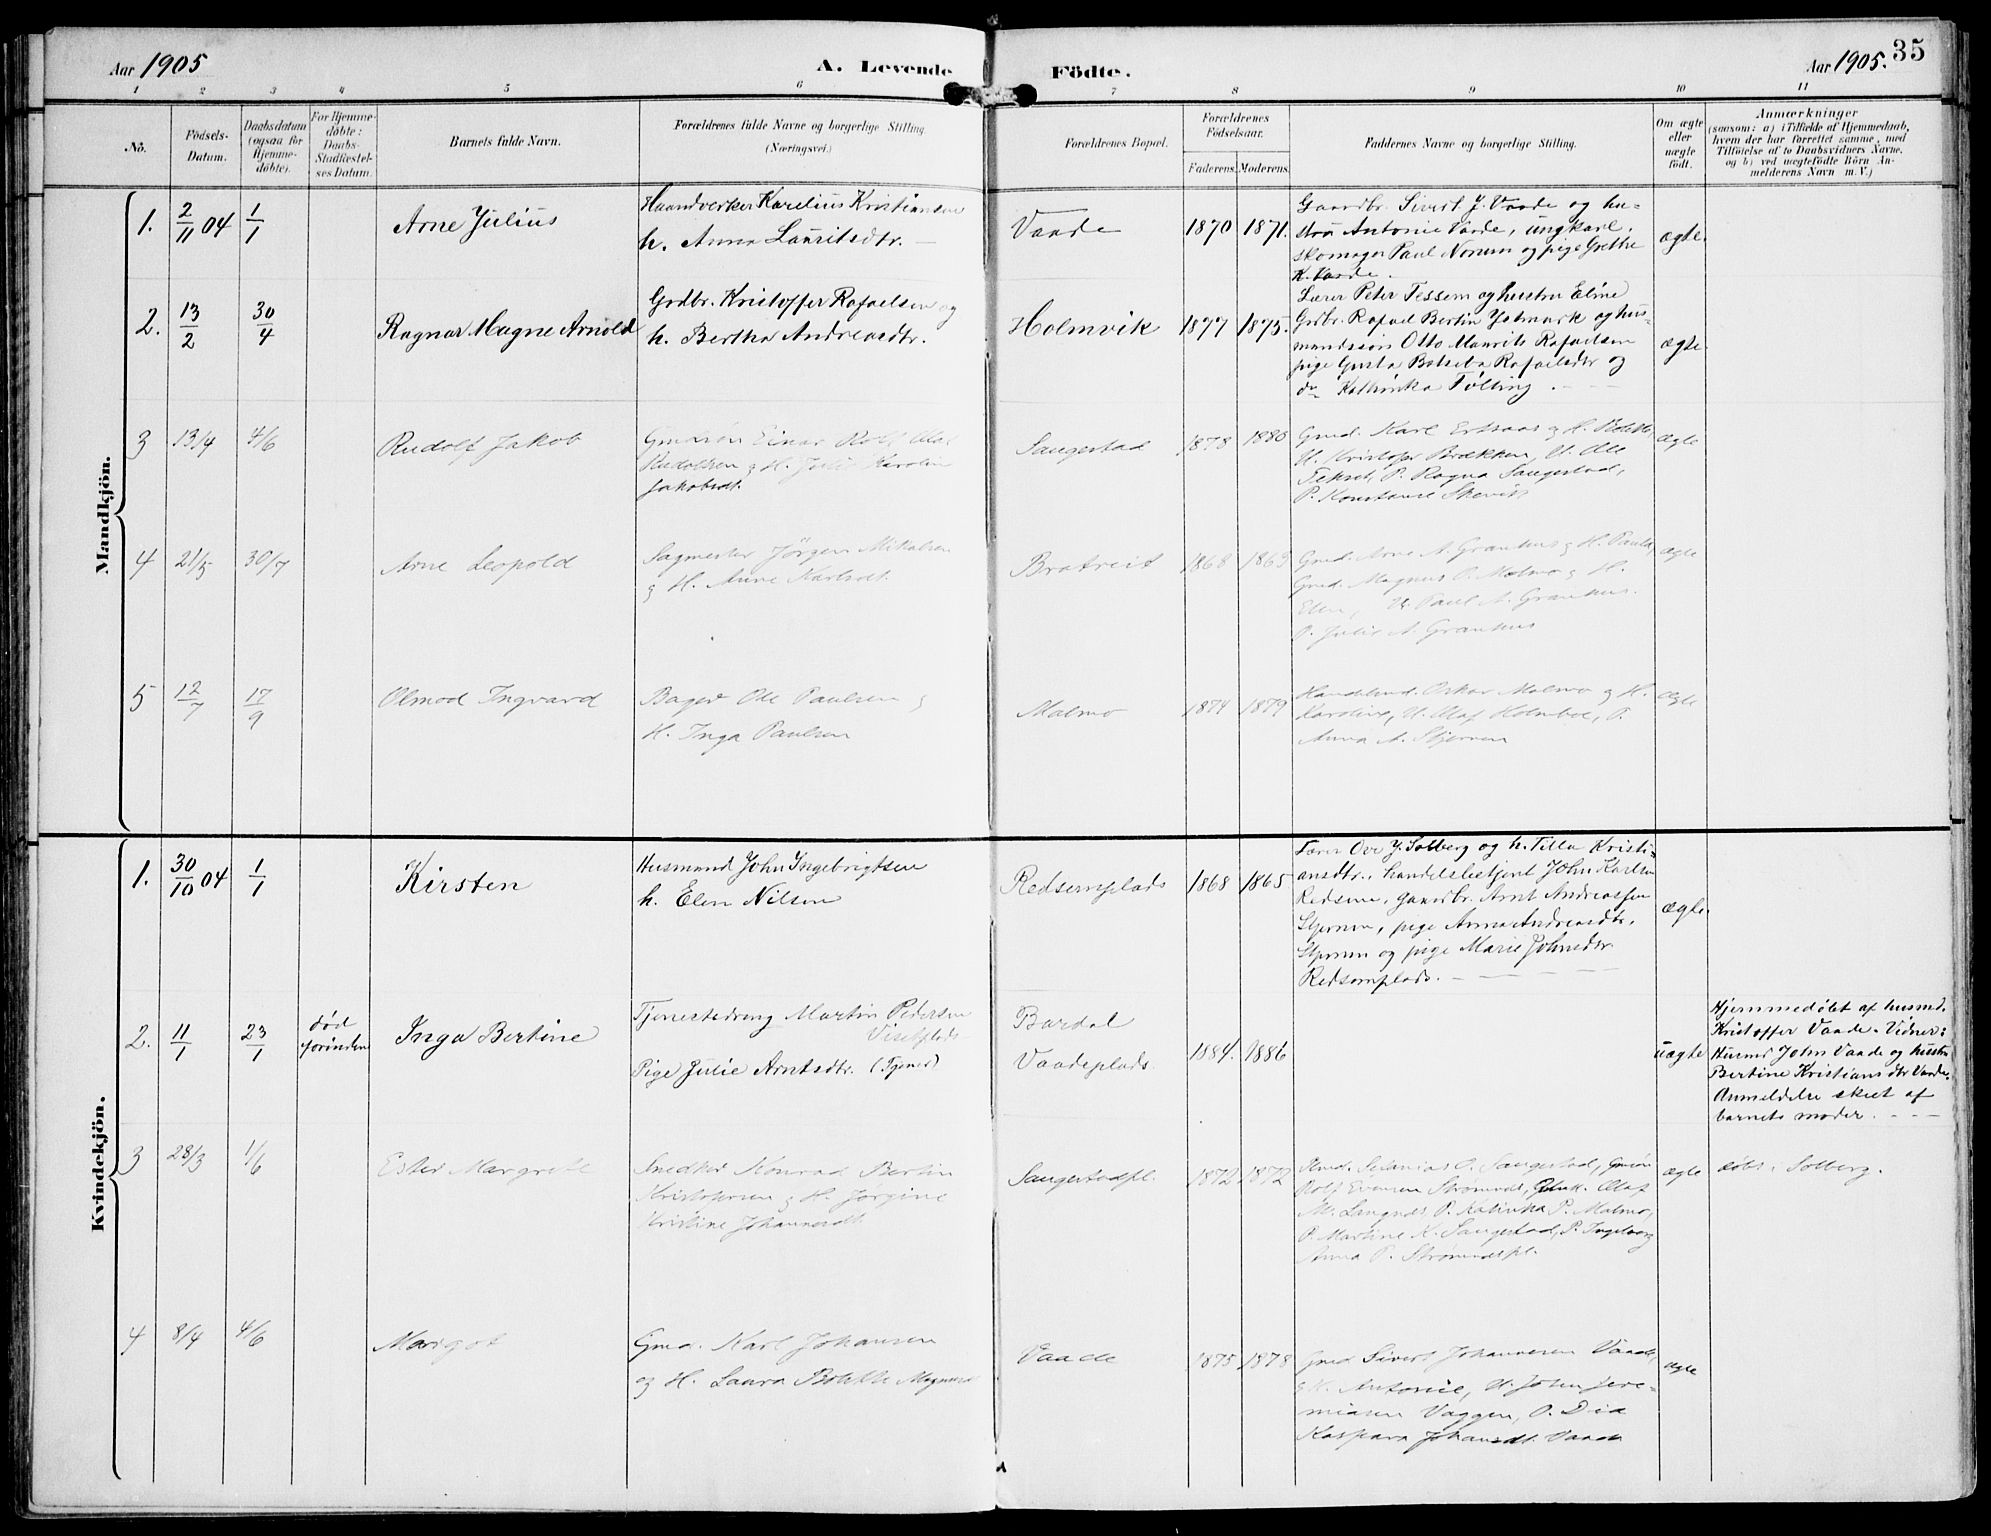 Aar 1905
A. Levende
Födte.
Aar 1905.
35
1 2 3 4 5 6 7 8 9 10 11
No.
Födsels-
Datum.
Daabsdatum
(ogsaa for
Hjemme-
döbte).
For Hjemme-
döbte:
Daabs-
Stadfæstel-
ses Datum.
Barnets fulde Navn.
Forældrenes fulde Navne og borgerlige Stilling.
(Næringsvei.)
Forældrenes Bopæl.
Forældrenes
Födselsaar.
Faderens. Moderens.
Faddernes Navne og borgerlige Stilling.
Om ægte
eller
uægte
födt.
Anmærkninger
(saasom: a) i Tilfælde af Hjemmedaab,
hvem der har forrettet samme, med
Tilföielse af to Daabsvidners Navne,
og b) ved uægtefödte Börn An-
melderens Navn m. V.)
Mandkjön.
1.
2/11 04
1/1
Arne Julius
Haandverker Karelius Kristiansen
h. Anna Lauritsdtr.
Vaade
1870 1871.
Gaardbr. Sivert J. Vaade og hu-
stru Antonie Vaade, ungkarl,
skomager Paul Norum og pige Grethe
K. Vaade.
ægte.
2.
13/2
30/4
Ragnar Magne Arnold
Grdbr. Kristoffer Rafaelsen og
h. Bertha Andreasdtr.
Holmvik
1877 1875.
Lærer Peter Tessem og hustru Eline
Grbr. Rafael Bertin og hus-
mandssøn Otto Maurits Rafaelsen
pige Gusta Betseba Rafaelsdtr og
do Kathinka Tølting.
ægte
3
13/4
4/6
Rudolf Jakob
Gmdsøn Einar Rolf Olaf
Rudolfsen & H. Julie Karoline
Jakobsdt.
Saugestad
1878 1880
Gmd. Karl & H.
U. Kristofer Brækken, U. Ole
P. Ragna Saugestad,
P. Konstanse
ægte
4
21/5
30/7
Arne Leopold
Sagmester Jörgen Mikalsen
& H. Anne Karlsdt.
Bratreit
1868 1863
Gmd. Arne A. Granhus & H. Paula,
Gmd. Magnus O. Malmo & H.
Elen, U. Paul A. Granhus.
P. Julie A. Granhus
ægte
5
12/7
17/9
Olmod Ingvard
Bager Ole Paulsen &
H. Inga Paulsen
Malmo
1874 1879
Handelsmd. Oskar Malmo & H.
Karoline, U. Olaf Holmboe, P.
Anna A. Stjernen
ægte
Kvindekjön.
1.
30/10 04
1/1
Kirsten
Husmand John Ingebrigtsen
h. Elen Nilsen
Redsemplads
1868 1865
Lærer Ove J. Solberg og h. Tilla Kristi-
ansdtr., handelsbetjent John Karlsen
Redsem, gaardbr. Arnt Andreassen
Stjernen, pige Anna Andreasdtr.
Stjernen og pige Marie Johnsdtr.
Redsemplads.
ægte.
2.
11/1
23/1
død
forinden
Inga Bertine
Tjenestedreng Martin Pedersen
Viselplads
Pige Julie Arntsdtr. (Tjener)
Bardal
Vaadeplads.
1884. 1886
uægte
Hjemmedøbt af husmd.
Kristoffer Vaade. Vidner:
Husmd John Vaade og hustru
Bertine Kristiansdtr Vaade.
Anmeldelse skeet af
barnets moder.
3
28/3
1/6
Ester Margrete
Snedker Konrad Bertin
Kristoffersen & H. Jørgine
Kristine Johannesdt
Saugestadpl.
1872 1872
O. Saugestad, Gmsön
Rolf Evensen Strömnes, Olaf
M. Langnes P. Katinka P. Malmo,
P. Martine K. Saugestad, P. Ingeborg
Anna P. Strömnespl.
ægte
döbt i Solberg.
4
8/4
4/6
Margot
Gmd. Karl Johansen
og H. Laura Bolette Magnusd
Vaade
1875 1878
Gmd Sivert Johannesen Vaade,
& H. Antonie, U. John Jere-
miasen Vaggen, P. Dea
Kaspara Johansdt Vaade
ægte